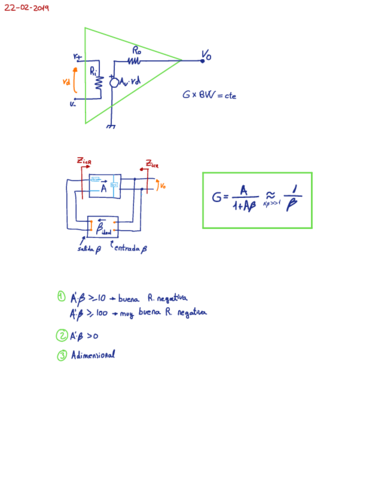 22-02-2019
Ro
Vo
v+
Ri
vd
A·vd
v-
G x BW = cte
A
β ideal
salida β
entrada β
G = A / 1+Aβ ≈ 1 / β
Aβ>>1
① A·β ≥ 10 → buena R. negativa
A·β ≥ 100 → muy buena R. negativa
② A·β > 0
③ Adimensional